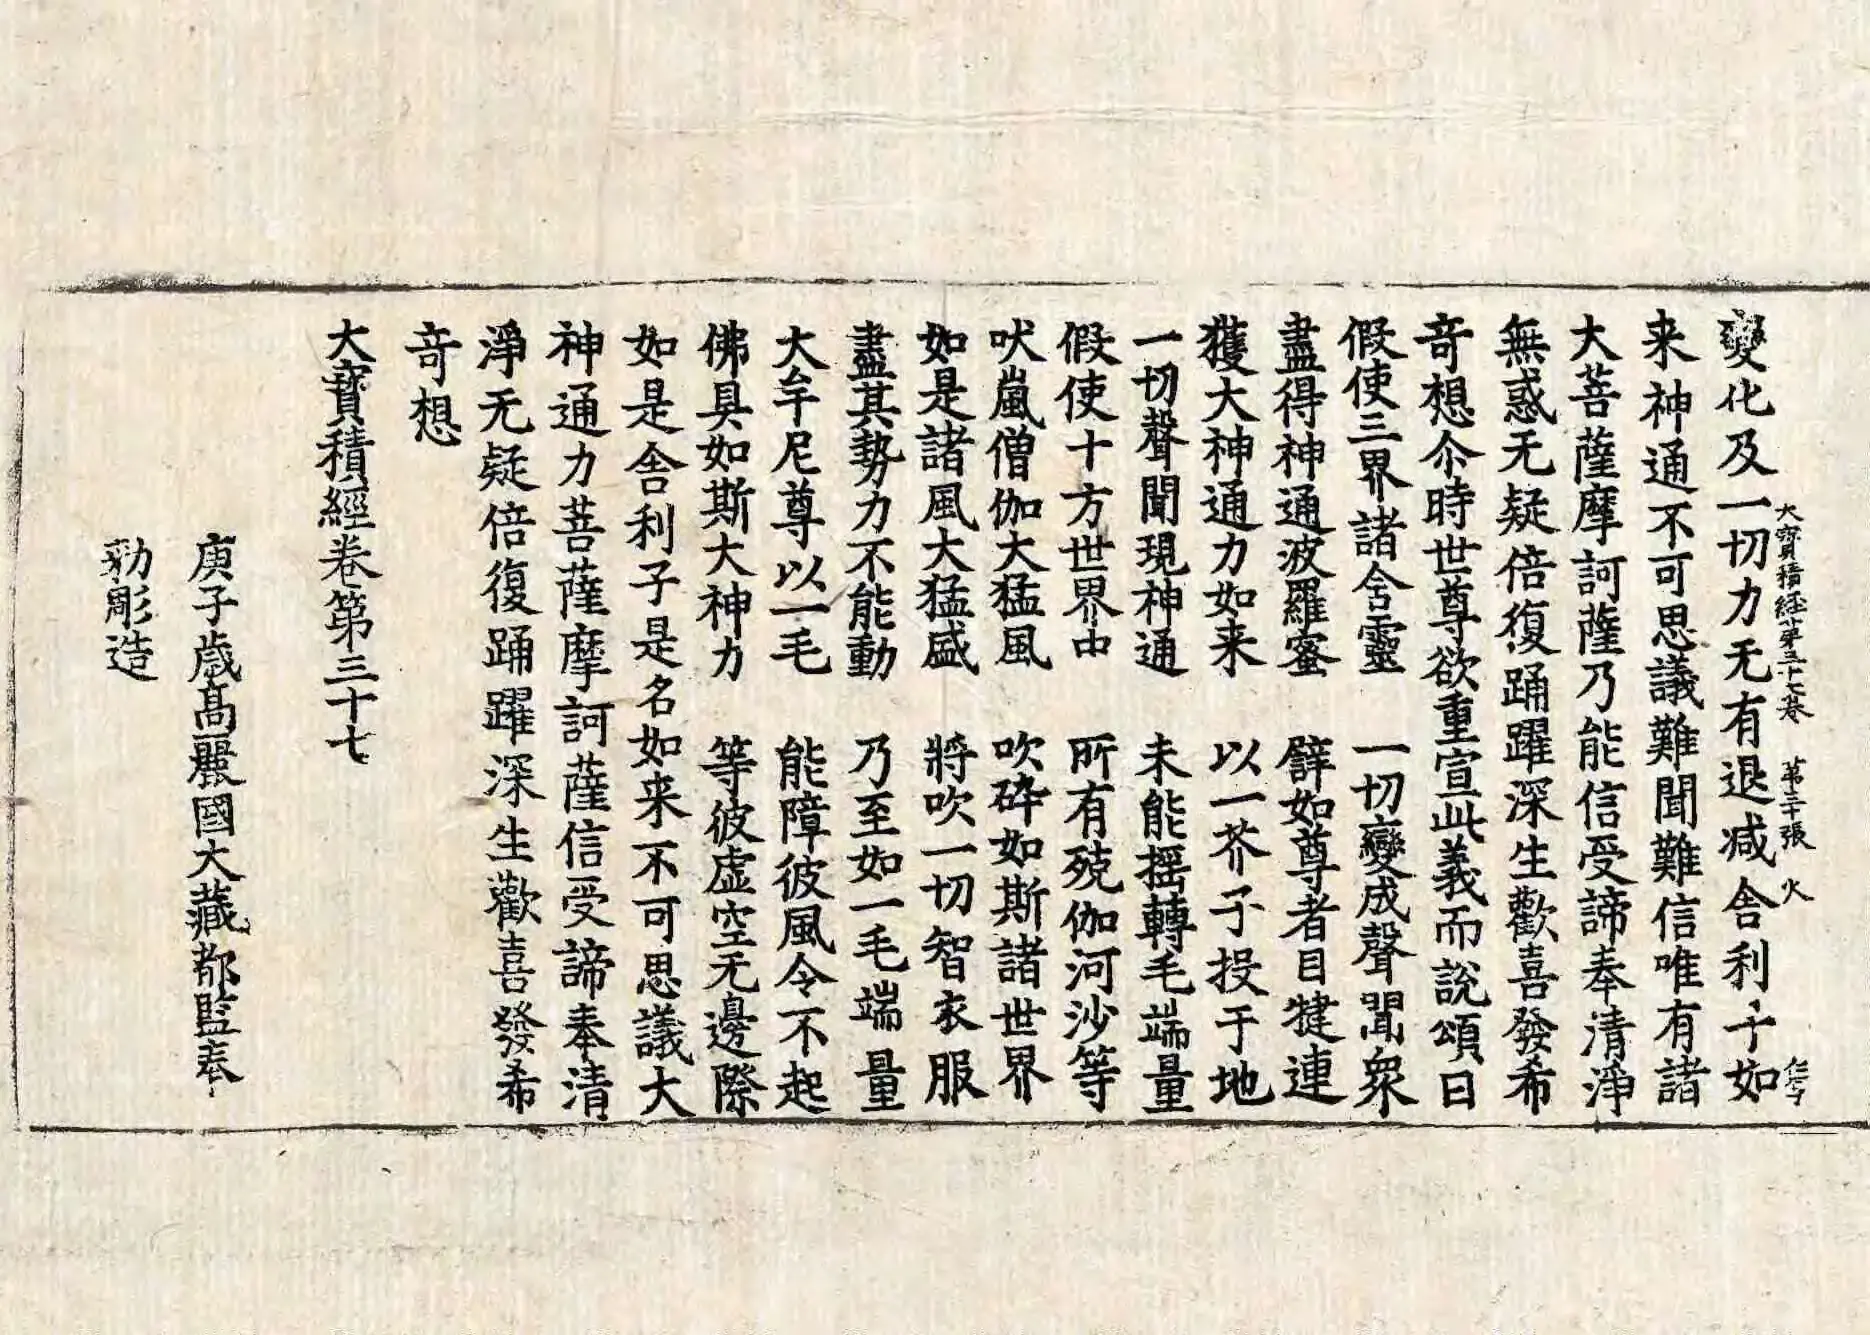 大寶積經第三十七卷 第二十張 火
變化及一切力无有退减舍利子如
来神通不可思議難聞難信唯有諸
大菩薩摩訶薩乃能信受諦奉清淨
無惑无疑倍復踊躍深生歡喜發希
奇想尒時世尊欲重宣此義而說頌曰
假使三界諸含靈 一切變成聲聞衆
盡得神通波羅蜜 譬如尊者目揵連
獲大神通力如来 以一芥子投于地
一切聲聞現神通 未能摇轉毛端量
假使十方世界中 所有殑伽河沙等
吠嵐僧伽大猛風 吹碎如斯諸世界
如是諸風大猛盛 將吹一切智衣服
盡其勢力不能動 乃至如一毛端量
大牟尼尊以一毛 能障彼風令不起
佛具如斯大神力 等彼虛空无邊際
如是舍利子是名如来不可思議大
神通力菩薩摩訶薩信受諦奉清
淨无疑倍復踊躍深生歡喜發希
奇想
大寶積經卷第三十七
庚子歲高麗國大藏都監奉
勑彫造